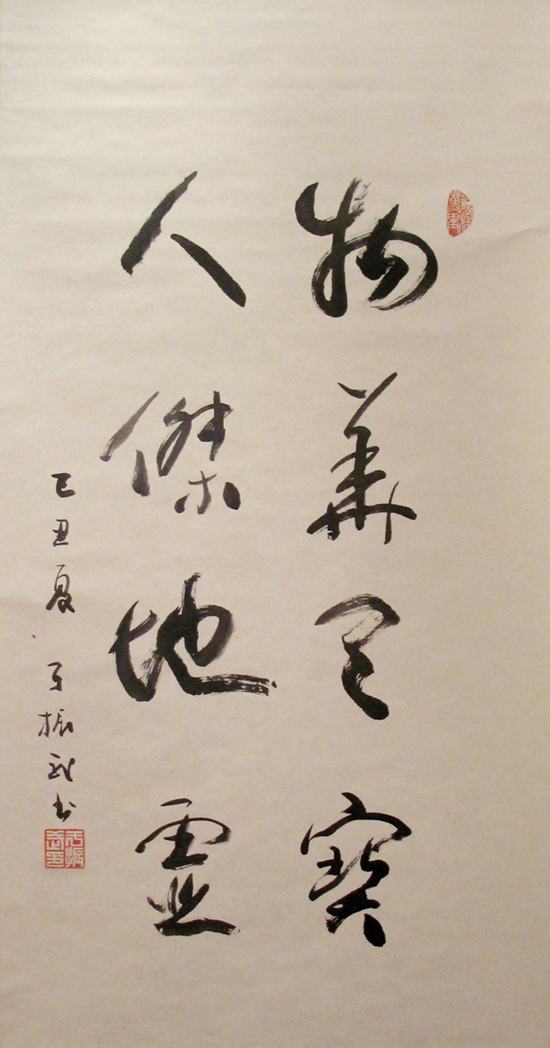 物華天寶
人傑地靈
己丑夏 于振武书